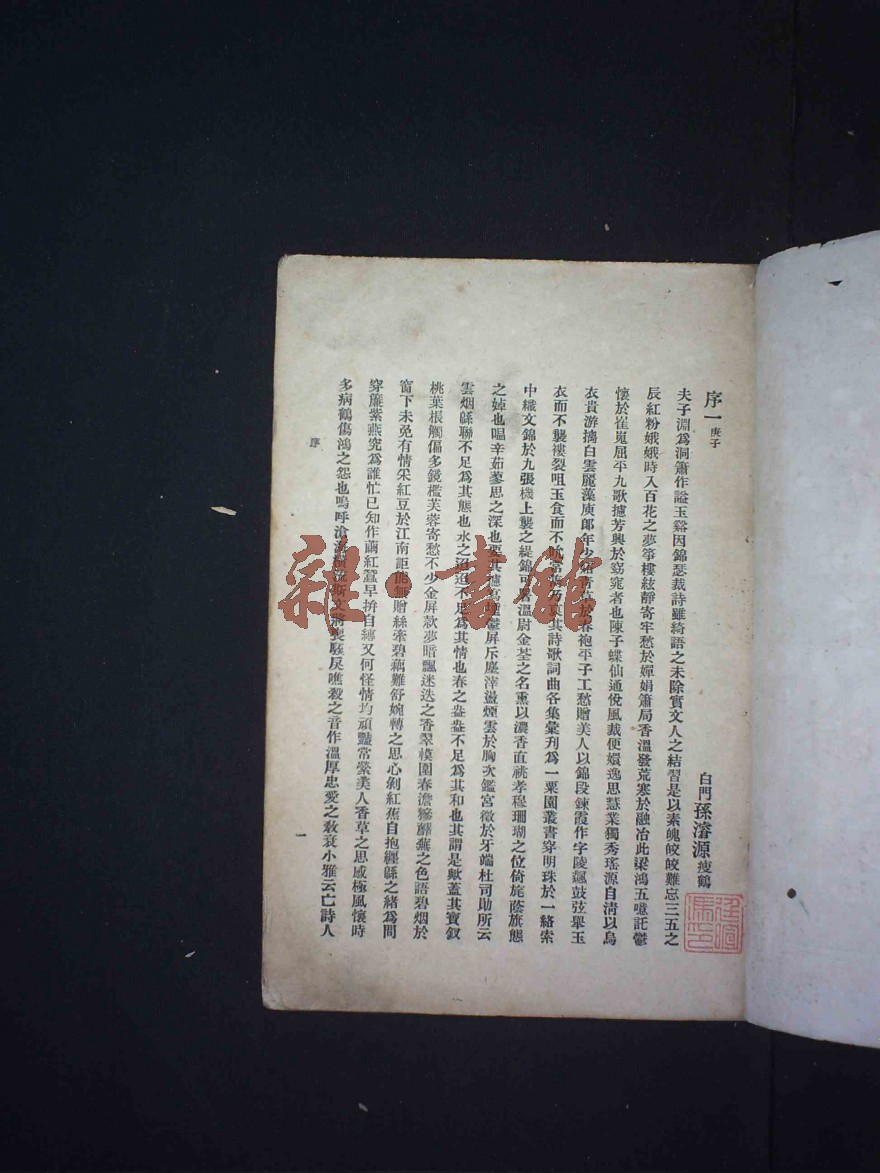 序一 庚子
白門 孫濬源 瘦鶴
夫子淵爲洞簫作諡玉谿因錦瑟裁詩雖綺語之未除實文人之結習是以素魄皎皎難忘三五之
辰紅粉娥娥時入百花之夢箏樓絃靜寄牢愁於嬋娟簫局香溫發荒寒於融冶此梁鴻五噫託鬱
懷於崔嵬屈平九歌攄芳興於窈窕者也陳子蝶仙通侻風裁便嬛逸思慧業獨秀瑤源自清以烏
衣貴游摛白雲麗藻庾郎年少妬青草於春袍平子工愁贈美人以錦段鍊霞作字陵飆鼓弦舉玉
衣而不襲褸裂咀玉食而不 其詩歌詞曲各集彙刋爲一粟園叢書穿明珠於一絡索
中織文錦於九張機上襲之緹錦可 溫尉金荃之名熏以濃香直祧孝穆珊瑚之位倚旎蔭旗態
之婥也嘔辛茹蓼思之深也要其 屏斥塵滓盪煙雲於胸次鑑宮徵於牙端杜司勛所云
雲烟緜聯不足爲其態也水之迢迢不足爲其情也春之盎盎不足爲其和也其謂是歟蓋其寶釵
桃葉棖觸偏多鏡檻芙蓉寄愁不少金屏款夢暗飄迷迭之香翠幙圍春澹 蘼蕪之色語碧烟於
窗下未免有情采紅豆於江南詎能無贈絲牽碧藕難舒婉轉之思心剝紅蕉自抱纏緜之緒爲問
穿簾紫燕究爲誰忙已知作繭紅蠶早拚自縛又何怪情均頑豔常縈美人香草之思感極風懷時
多病鶴傷鴻之怨也嗚呼滄海橫流斯文將喪騷戾噍殺之音作溫厚忠愛之敎衰小雅云亡詩人
序
一
雜·書館